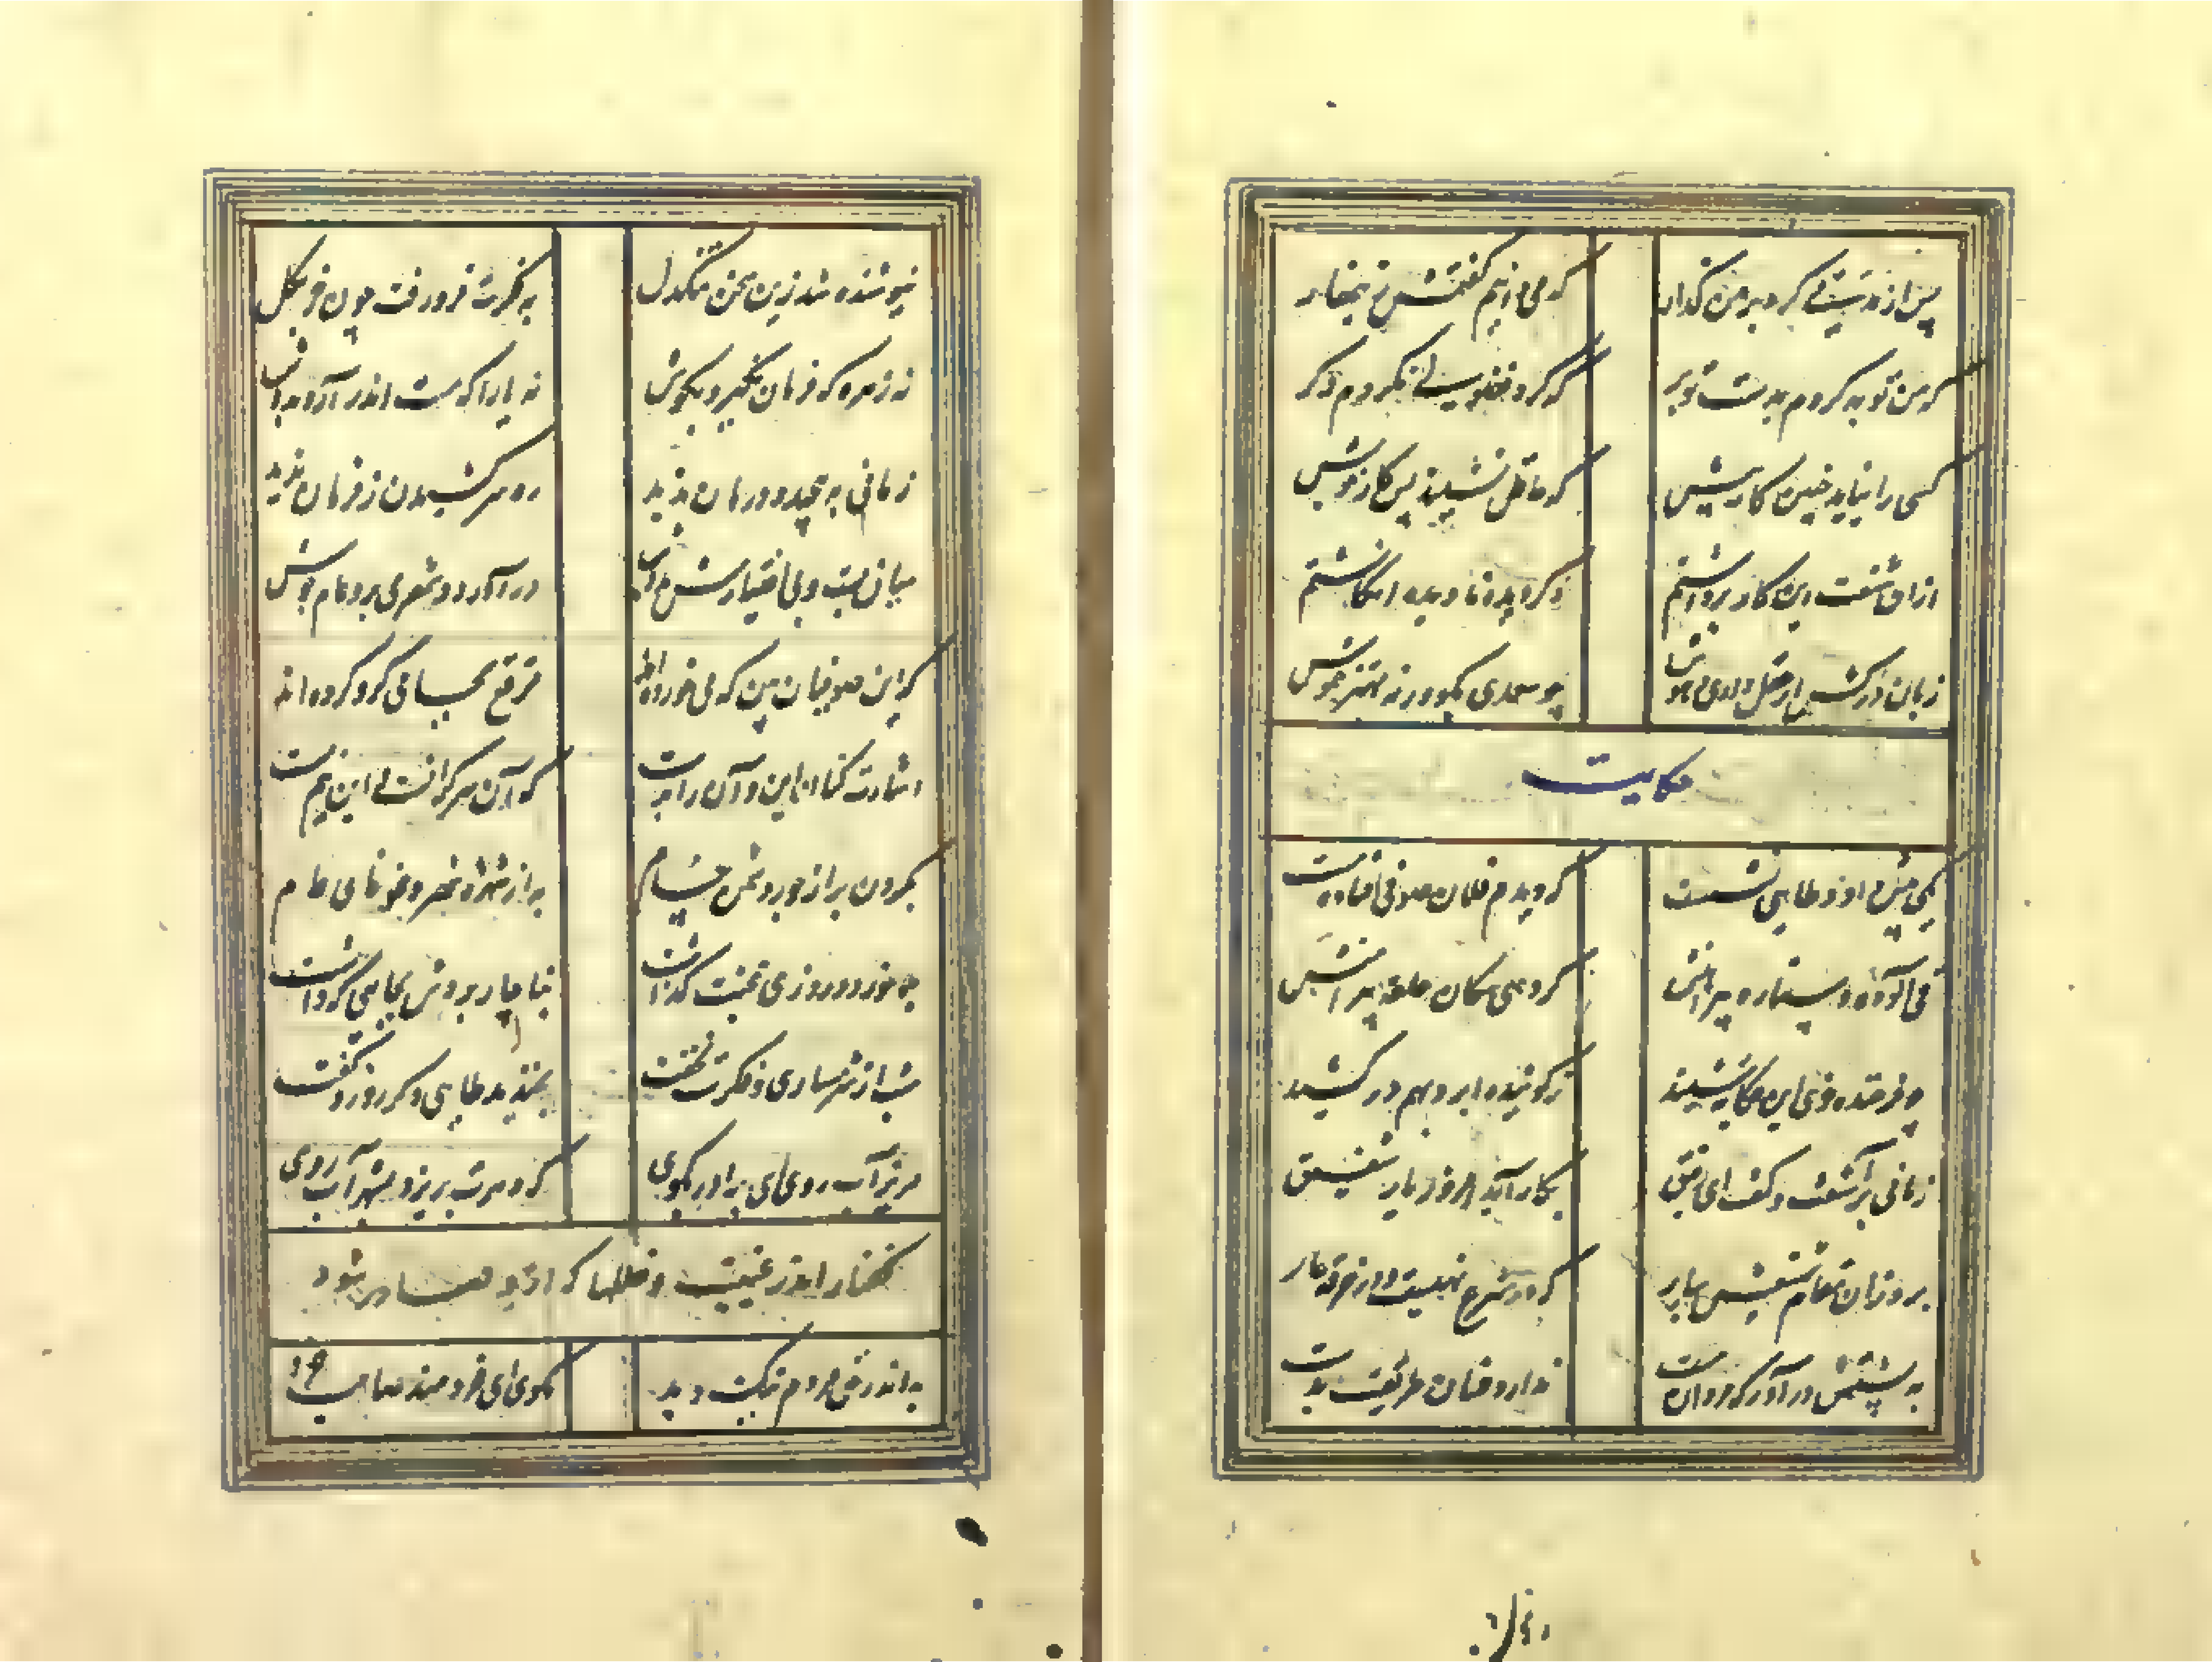 پس از مدتی کرد بر من گذار که می دانیم گفتمش زینهار
که من توبه کردم بدست تو بر که گرد فضولی نگردم دگر
کسی را نیاید چنین کار پیش که عاقل نشیند پس کار خویش
ازان شنعت این کار برداشتم دگر دیده نادیده انگاشتم
زبان درکش ار عقل داری و هوش چو سعدی بگو ورنه بنشین خموش
حکایت
یکی پیش داود طایی نشست که دیدم فلان صوفی افتاده مست
قی آلوده دستار و پیراهنش گروهی سگان حلقه پیرامنش
چو فرخنده خوی این حکایت شنید ز گوینده ابرو بهم در کشید
زمانی برآشفت و گفت ای رفیق بکار آید امروز یار شفیق
برو زان مقام شنیعش بیار که در شرع نهیست و در خرقه عار
به پشتش در آور که مردان مست ندارد عنان طریقت بدست
نیوشنده شد زین سخن تنگدل به فکرت فرو رفت چون خر بگل
نه زهره که فرمان نگیرد بگوش نه یارا که مست اندر آرد بدوش
زمانی به پیچید و درمان ندید ره سر کشیدن ز فرمان ندید
میان بست و بی اختیارش در آورد و شهری برو عام جوش
که این صوفیان بین که می خورده اند مرقع به سیکی گرو کرده اند
اشارت کنان این و آن را بدست که آن سر گرانست این نیم مست
بگردن بر از جور دشمن حسام به از شهره شهر و غوغای عام
بلا خورد و روزی به محنت گذاشت بناچار بردش بجایی که داشت
شب از شرمساری و فکرت نخفت بخندید طایی دگر روز و گفت
مریز آب روی ای برادر بکوی که دهرت بریزد بشهر آب روی
گفتار اندر غیبت و خللها که از وی صادر شود
بد اندر حق مردم نیک و بد مگوی ای خردمند صاحب خرد